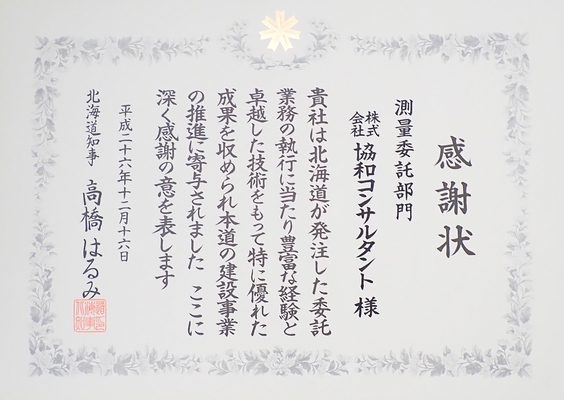 感謝状
測量委託部門
株式会社 協和コンサルタント 様
貴社は北海道が発注した委託
業務の執行に当たり豊富な経験と
卓越した技術をもって特に優れた
成果を収められ本道の建設事業
の推進に寄与されました ここに
深く感謝の意を表します
平成二十六年十二月十六日
北海道知事 高橋はるみ